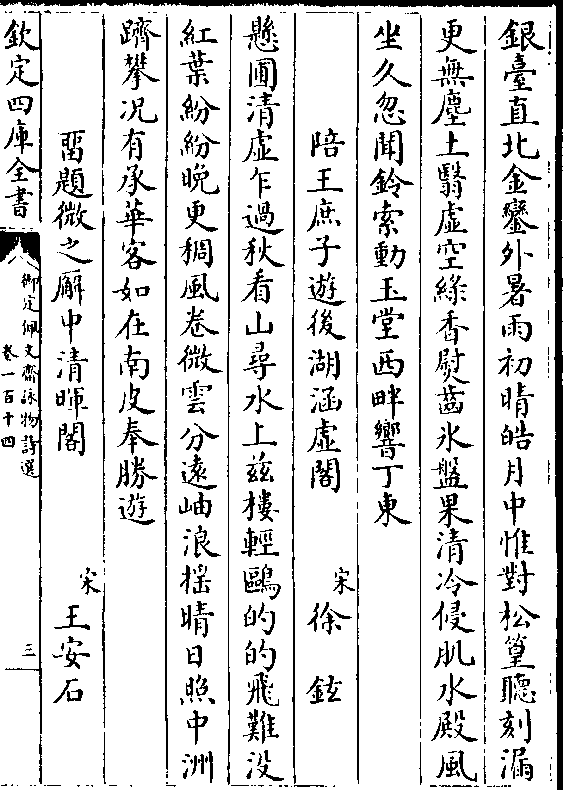 銀臺直北金鑾外暑雨初晴皓月中惟對松篁聽刻漏
更無塵土翳虛空綠香熨齒氷盤果清冷侵肌水殿風
坐久忽聞鈴索動玉堂西畔響丁東
陪王庶子遊後湖涵虛閣 宋 徐鉉
懸圃清虛乍過秋看山尋水上兹樓輕鷗的的飛難没
紅葉紛紛晚更稠風卷微雲分遠岫浪揺晴日照中洲
躋攀况有承華客如在南皮奉勝遊
畱題微之廨中清暉閣 宋 王安石
欽定四庫全書
御定佩文齋詠物詩選
卷一百十四
三